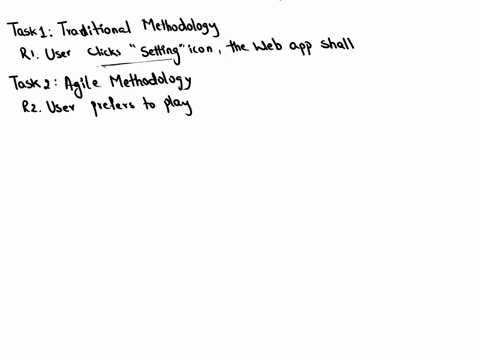 Task1: Traditional Methodology
R1. User clicks "Setting" icon, the Web app shall
Task2: Agile Methodology
R2. User prefers to play